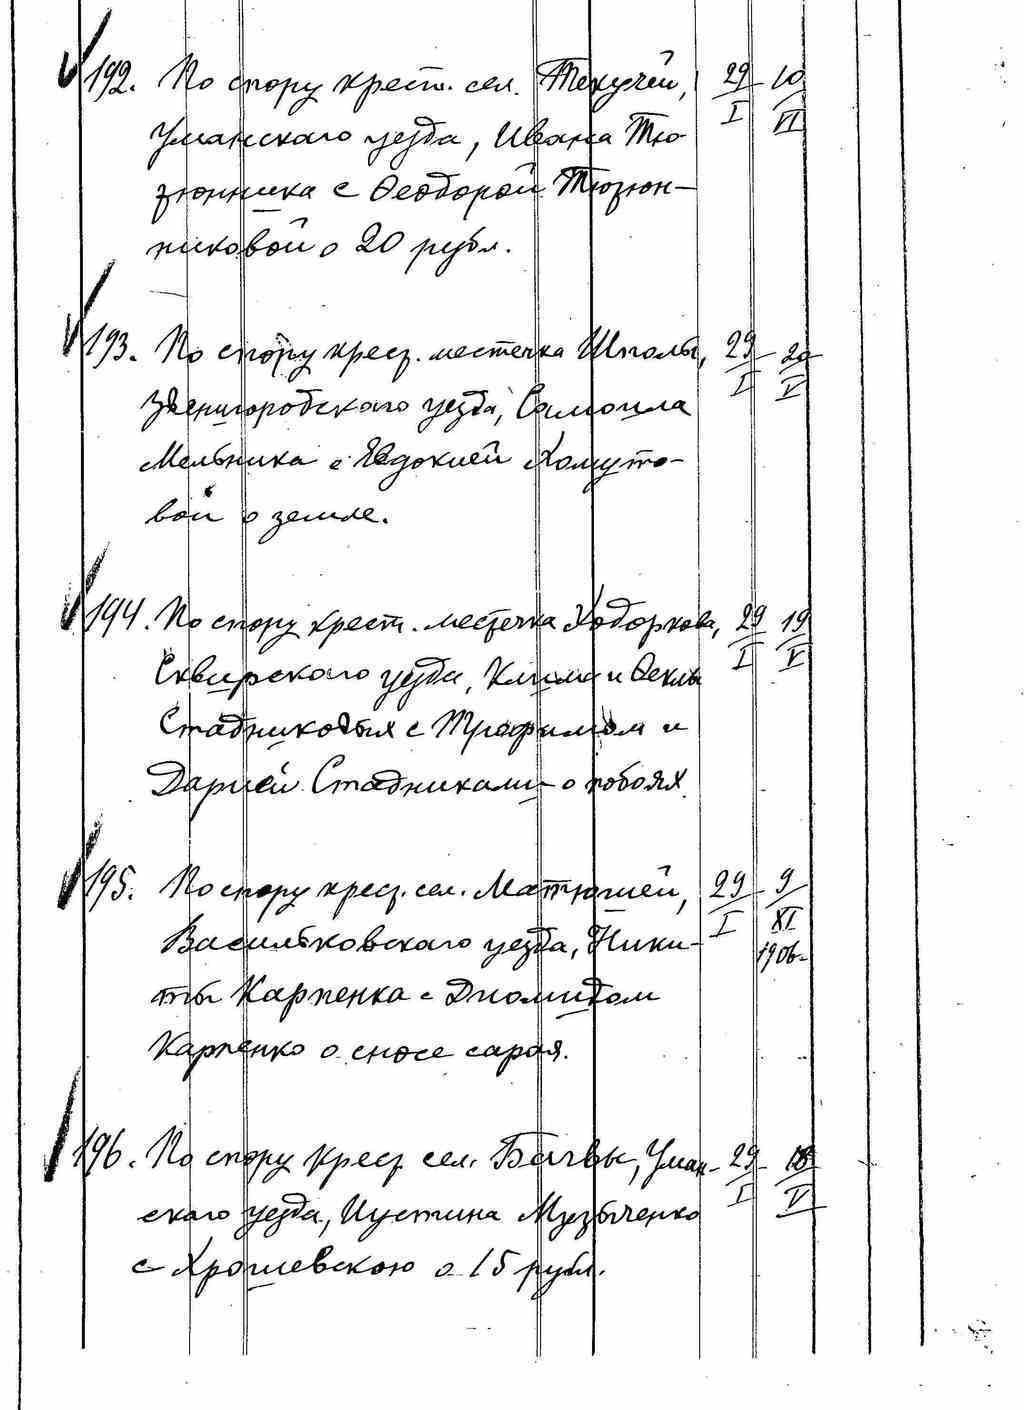 192. По спору крест. сел. Текучей, 29/I 10/VI
Уманского уезда, Ивана Тю-
зюнника с Феодорой Тюзюн-
никовой о 20 рубл.
193. По спору крест. местечка Шполы, 29/I 20/V
Звенигородского уезда, Самоила
Мельника с Евдокией Хомуто-
вой о земле.
194. По спору крест. местечка Ходоркова, 29/I 19/V
Сквирского уезда, Клима и Феклы
Стадниковых с Трофимом и
Дарией Стадниками о побоях.
195. По спору крест. сел. Матюшей, 29/I 9/XI
Васильковского уезда, Ники- 1906
ты Карпенка с Диомидом
Карпенко о сносе сарая.
196. По спору крест. сел. Багвы, Уман- 29/I 18/V
ского уезда, Иустина Музыченко
с Хрошевскою о 15 рубл.